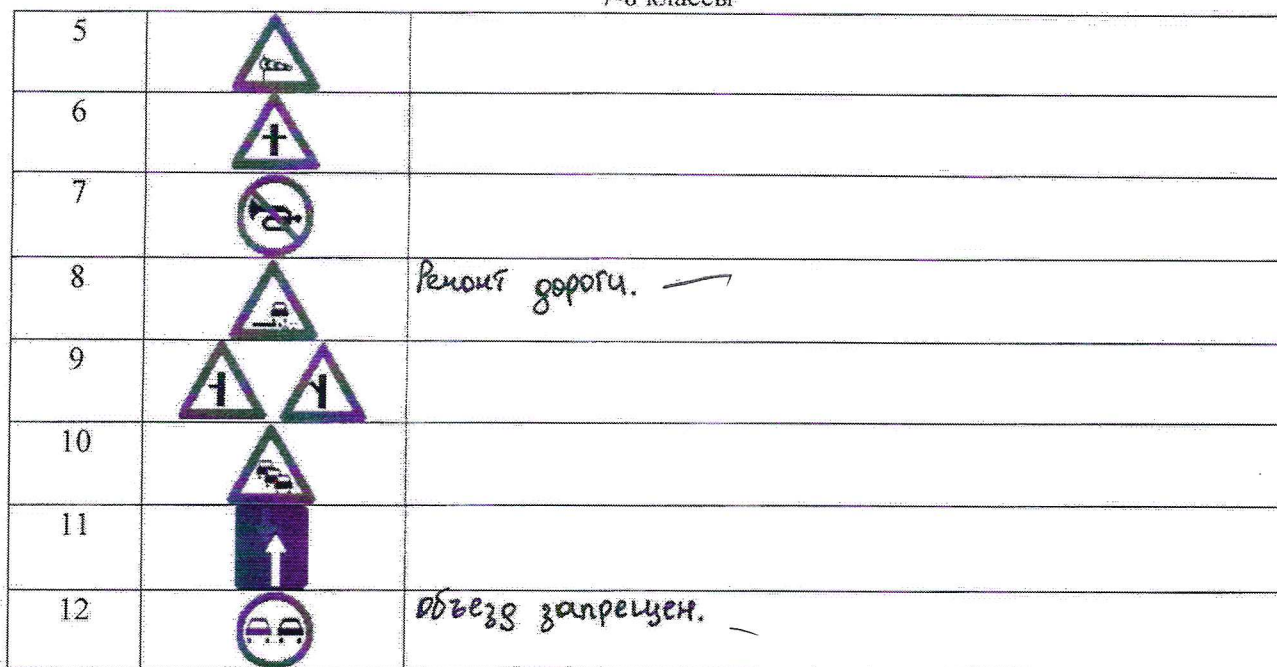 7-8 классы
5
6
7
8 Ремонт дороги.
9
10
11
12 объезд запрещен.